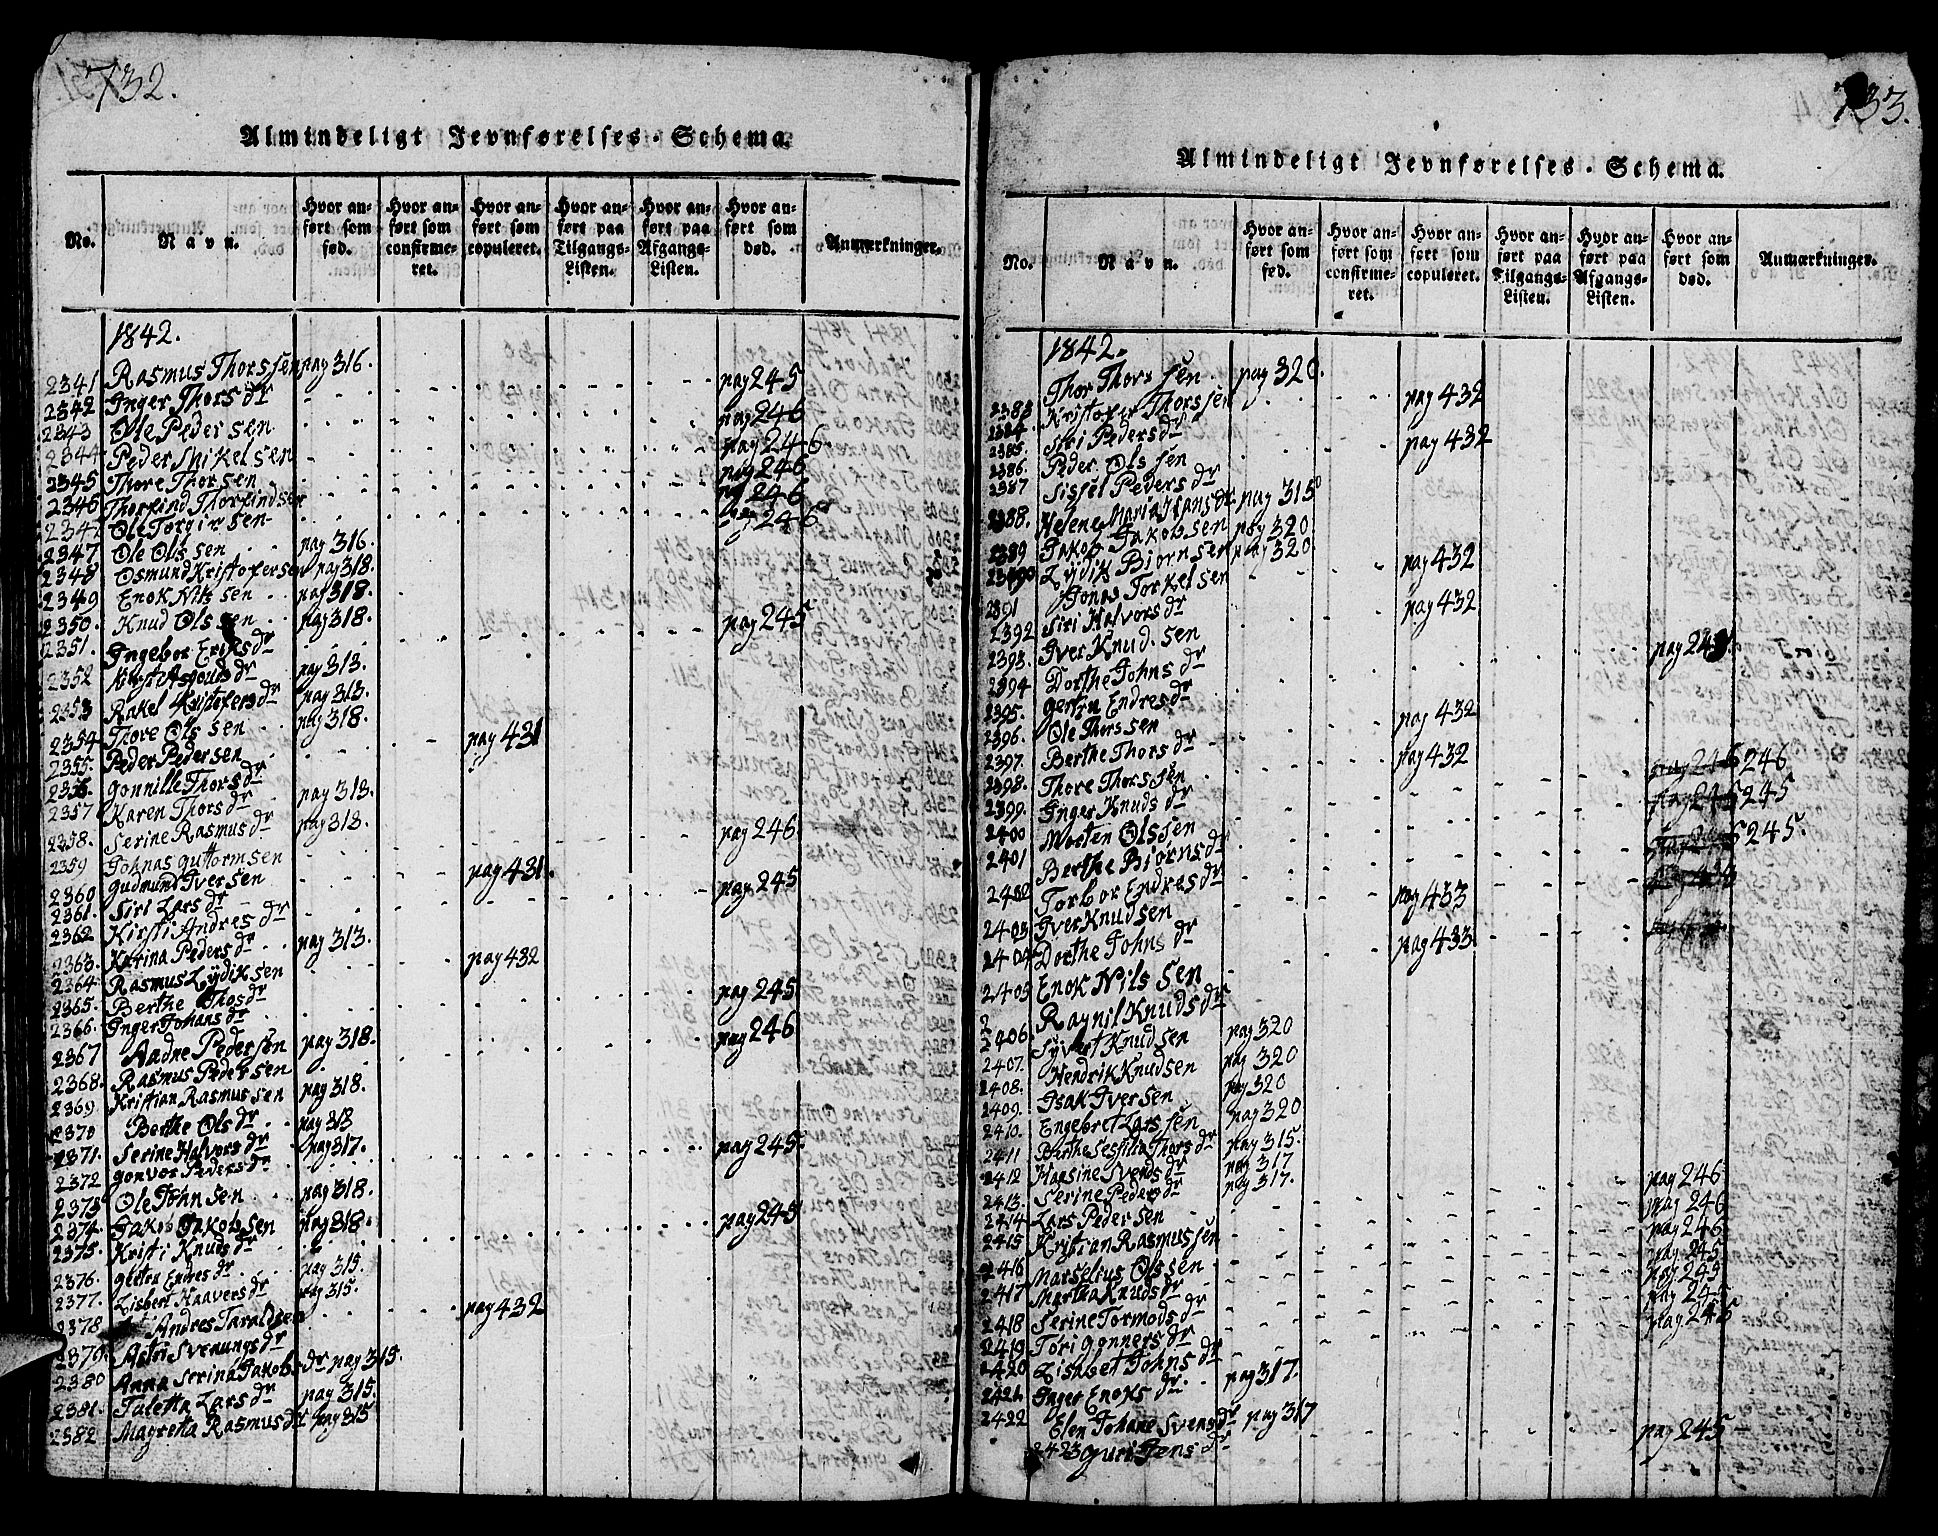 732.
Almindeligt Jevnførelses-Schema.
No. Navn. Hvor anført som fød. Hvor anført som confirmeret. Hvor anført som copuleret. Hvor anført paa Tilgangs-Listen. Hvor anført paa Afgangs-Listen. Hvor anført som død. Anmærkninger.
1842.
2341 Rasmus Thorssen pag 316.
2342 Inger Thors dr pag 245
2343 Ole Pedersen pag 246
2344 Peder Mikelsen pag 246
2345 Thore Thorsen pag 246
2346 Thorkind Thorkindsen pag 246
Ole Torgirsen pag 246
2347 Ole Olssen pag 316.
2348 Osmund Kristofersen pag 318.
2349 Enok Nilssen pag 318.
2350. Knud Olssen pag 318.
2351. Ingebor Eriks dr pag 245
2352 dr pag 313.
2353 Rakel Kristofers dr pag 313.
2354 Thore Olssen pag 318.
2355. Peder Pedersen pag 431
2356. Gonnille Thors dr
2357 Karen Thors dr pag 313.
2358. Serine Rasmus dr pag 313.
2359 Johnas Guttormsen pag 246.
2360 Gudmund Iversen pag 431.
2361. Siri Lars dr
2362 Kirsti Andres dr pag 245
2363. Katrina Peders dr pag 313.
2364. Rasmus Lydiksen pag 432
2365. Berthe Thos dr
2366. Inger Johans dr pag 245
2367 Aadne Pedersen pag 318.
2368. Rasmus Pedersen pag 246
2369. Kristian Rasmussen pag 318.
2370 Berthe Ols dr pag 313
2371. Serine Halvors dr pag 317.
2372 Gonvor Peders dr pag 245.
2373 Ole Johnsen pag 318.
2374. Jakob Jakobsen pag 318.
2375. Kristi Knuds dr pag 245
2376. Endres dr pag 315.
2377. Lisbert Haavers dr pag 315.
2378 Andres Taraldsen pag 432
2379. Astri Svenungs dr
2380 Anna Serina Jakobs dr pag 315.
2381. Taletta Lars dr pag 315.
2382 Magreta Rasmus dr pag 315
733.
Almindeligt Jevnførelses-Schema.
No. Navn. Hvor anført som fød. Hvor anført som confirmeret. Hvor anført som copuleret. Hvor anført paa Tilgangs-Listen. Hvor anført paa Afgangs-Listen. Hvor anført som død. Anmærkninger.
1842.
2383 Thor Thorssen pag 320.
2384. Kristofer Thorssen pag 432
2385. Siri Peders dr
2386. Peder Olssen pag 432
2387 Sissel Peders dr
2388. Helene Maria Hans dr pag 315
2389 Jakob Jakobsen pag 320
2390 Lydik Bjørnsen pag 320
2391 Jonas Torkelsen pag 432
2392 Siri Halvors dr
2393. Iver Knudsen pag 432
2394 Dorthe Johns dr
2395. Gertru Endres dr
2396. Ole Thorssen pag 432
2397 Berthe Thors dr
2398. Thore Thorssen pag 432
2399. Inger Knuds dr 246
2400 Morten Olssen 245
2401 Berthe Bjørns dr 245.
Torbor Endres dr
2403 Iver Knudsen pag 433
2404 Dorthe Johns dr
2405 Enok Nilssen pag 433
Ragnil Knuds dr
2406. Syvert Knudsen pag 320
2407. Hendrik Knudsen pag 320
2408. Isak Iversen pag 320
2409. Engebret Larssen pag 320
2410. Berthe Sesselia Thors dr pag 315.
2411 Hansine Svends dr pag 317
2412 Serine Peders dr pag 317.
2413. Lars Pedersen pag 246
2414 Kristian Rasmussen pag 246
2415 Marselius Olssen pag 246
2416 Martha Knuds dr pag 245
2417 Serine Tormods dr pag 245
2418 Tøri Gonners dr pag 245
2419 Lisabet Johns dr pag 245
2420 Inger Enoks dr pag 317.
2422 Elen Johane Svens dr pag 317
2423 Guri Jens dr pag 245